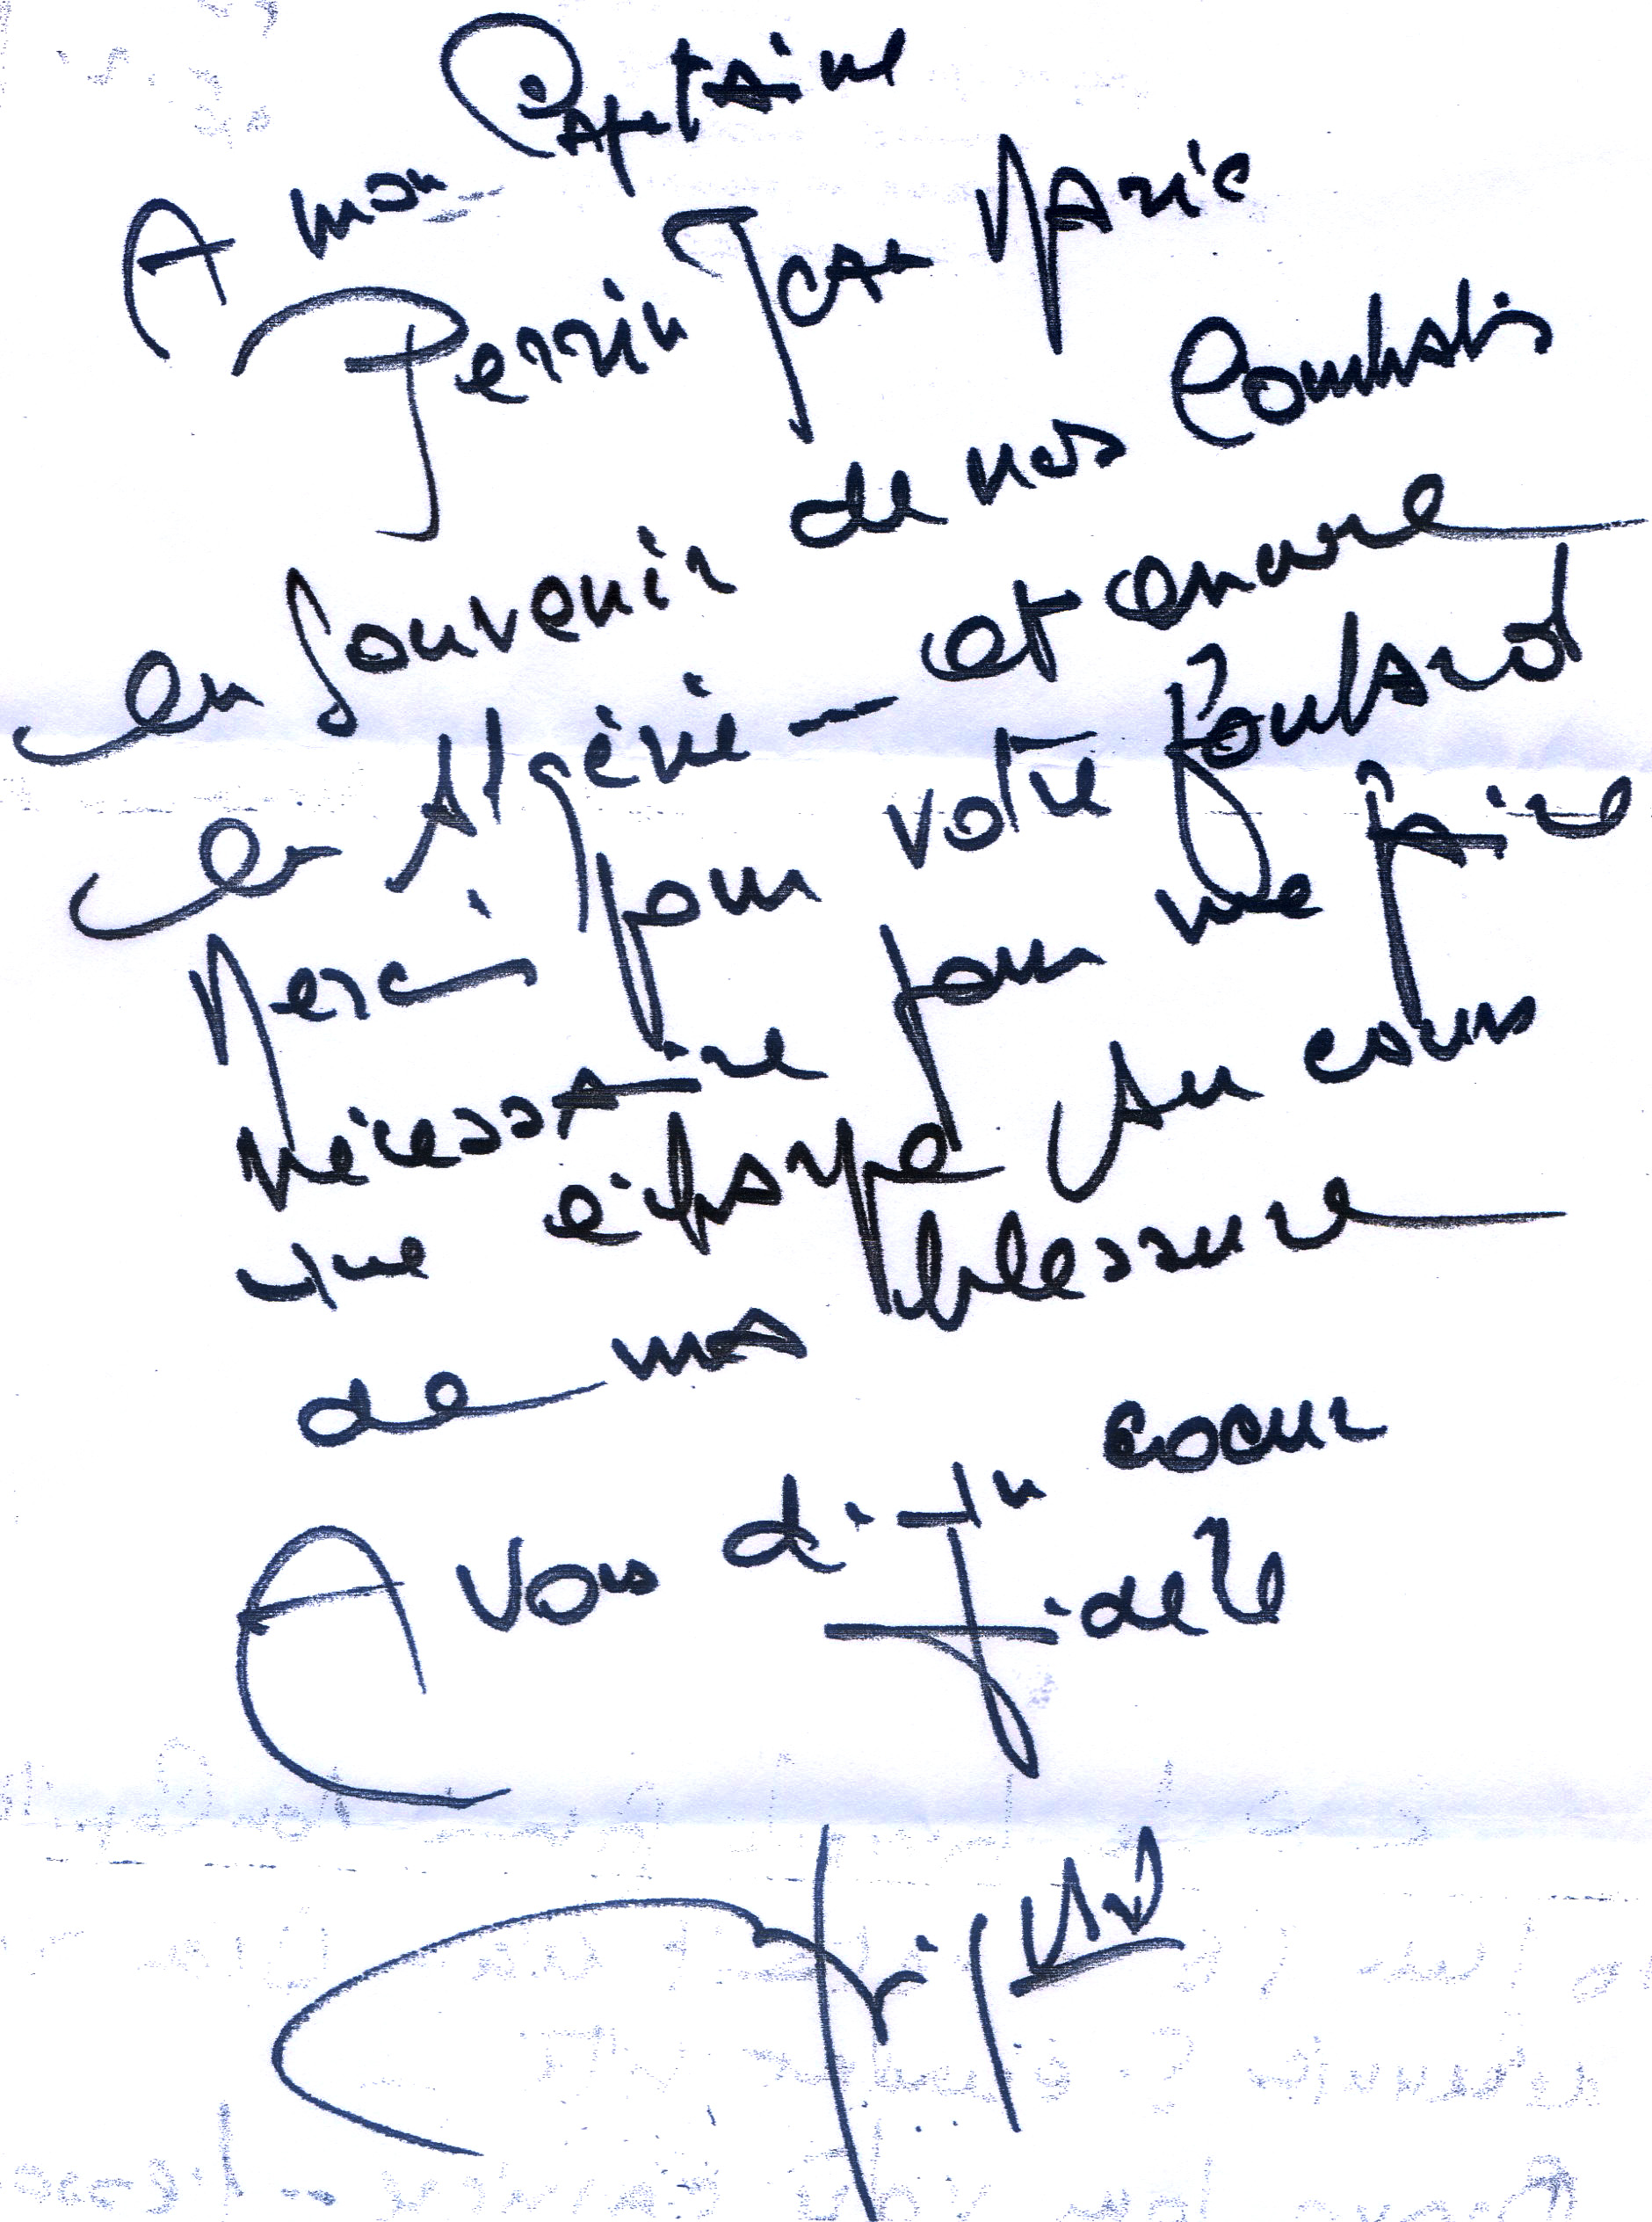 A mon Capitaine
Perrin Jean Marie
en souvenir de nos Combats
en Algérie — et encore
Merci pour votre foulard
nécessaire pour me faire
une écharpe au cours
de ma blessure
A vous d'un coeur
fidele